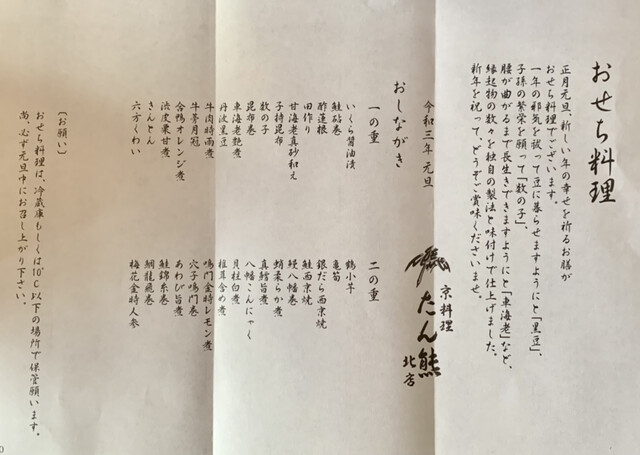 おせち料理
正月元旦、新しい年の幸せを祈るお膳が
おせち料理でございます。
一年の邪気を祓って豆に暮らせますようにと「黒豆」、
子孫の繁栄を願って「数の子」、
腰が曲がるまで長生きできますようにと「車海老」など、
縁起物の数々を独自の製法と味付けで仕上げました。
新年を祝って、どうぞご賞味くださいませ。
京料理
たん熊
北店
令和三年 元旦
おしながき
一の重
いくら醤油漬
鮭砧巻
酢蓮根
田作り
甘海老真砂和え
子持昆布
数の子
昆布巻
車海老艶煮
丹波黒豆
牛肉時雨煮
牛蒡月冠
合鴨オレンジ煮
渋皮栗甘煮
きんとん
六方くわい
二の重
鶴小芋
亀筍
銀だら西京焼
鮭西京焼
鰻八幡巻
蛸柔らか煮
真鱈旨煮
八幡こんにゃく
月柱白煮
椎茸含め煮
鳴門金時レモン煮
穴子鳴門巻
あわび旨煮
鮭錦糸巻
鯛龍飛巻
梅花金時人参
〔お願い〕
おせち料理は、冷蔵庫もしくは10℃以下の場所で保管願います。
尚、必ず元旦中にお召し上がり下さい。